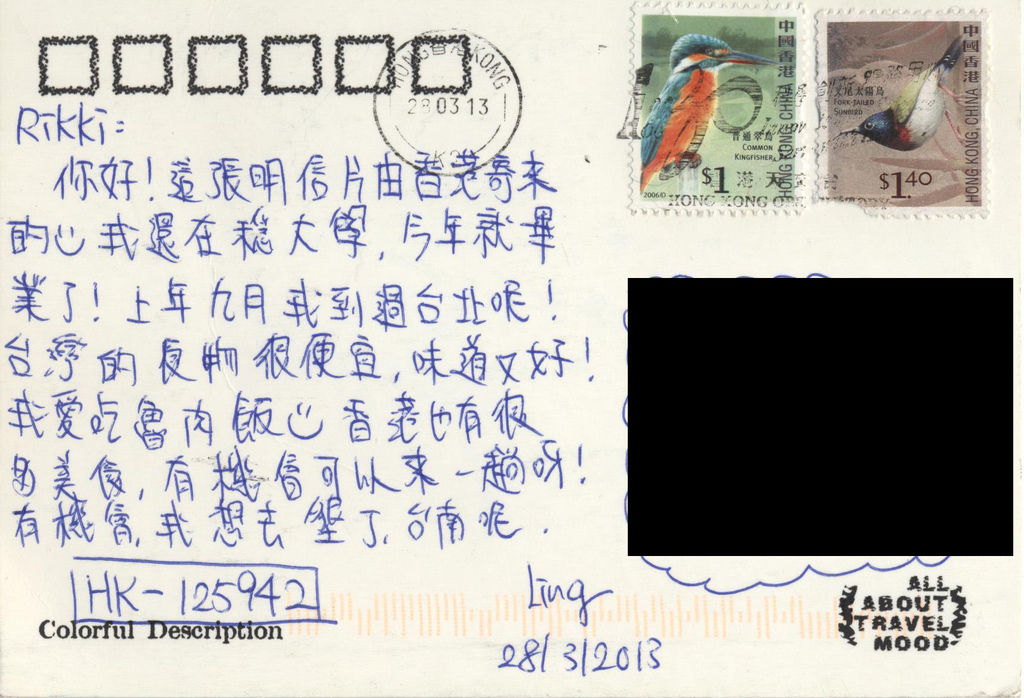 HONG 香港 KONG
28 03 13
中國香港
HONG KONG, CHINA
普通翠鳥
COMMON
KINGFISHER
$1
2006©
中國香港
HONG KONG, CHINA
叉尾太陽鳥
FORK-TAILED
SUNBIRD
$1.40
Rikki:
你好！這張明信片由香港寄來
的☺我還在穩大學,今年就畢
業了！上年九月我到過台北呢！
台灣的食物很便宜,味道又好！
我愛吃魯肉飯☺香港也有很
多美食,有機會可以來一趟呀！
有機會,我想去墾丁,台南呢.
HK-125942
Ling
28/3/2013
Colorful Description
ALL
ABOUT
TRAVEL
MOOD